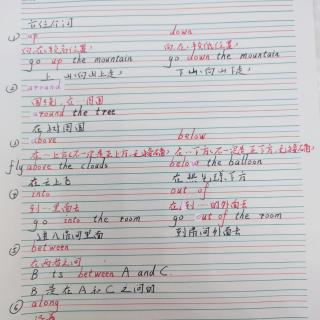 方位介词
① up down
向、在较高位置; 向、在较低位置;
go up the mountain go down the mountain
上山、向山上走; 下山、向山下走;
② around
围绕、在…周围
around the tree
在树周围
③ above below
在…上方(不一定是正上方,无接触面); 在…下方(不一定是正下方,无接触面);
fly above the clouds below the balloon
在云上飞 下方
④ into out of
到…里面去 在/到…的外面去
go into the room go out of the room
进入房间里面 到房间外面去
⑤ between
在两者之间
B is between A and C.
B 是在 A 和 C 之间的
⑥ along
沿着